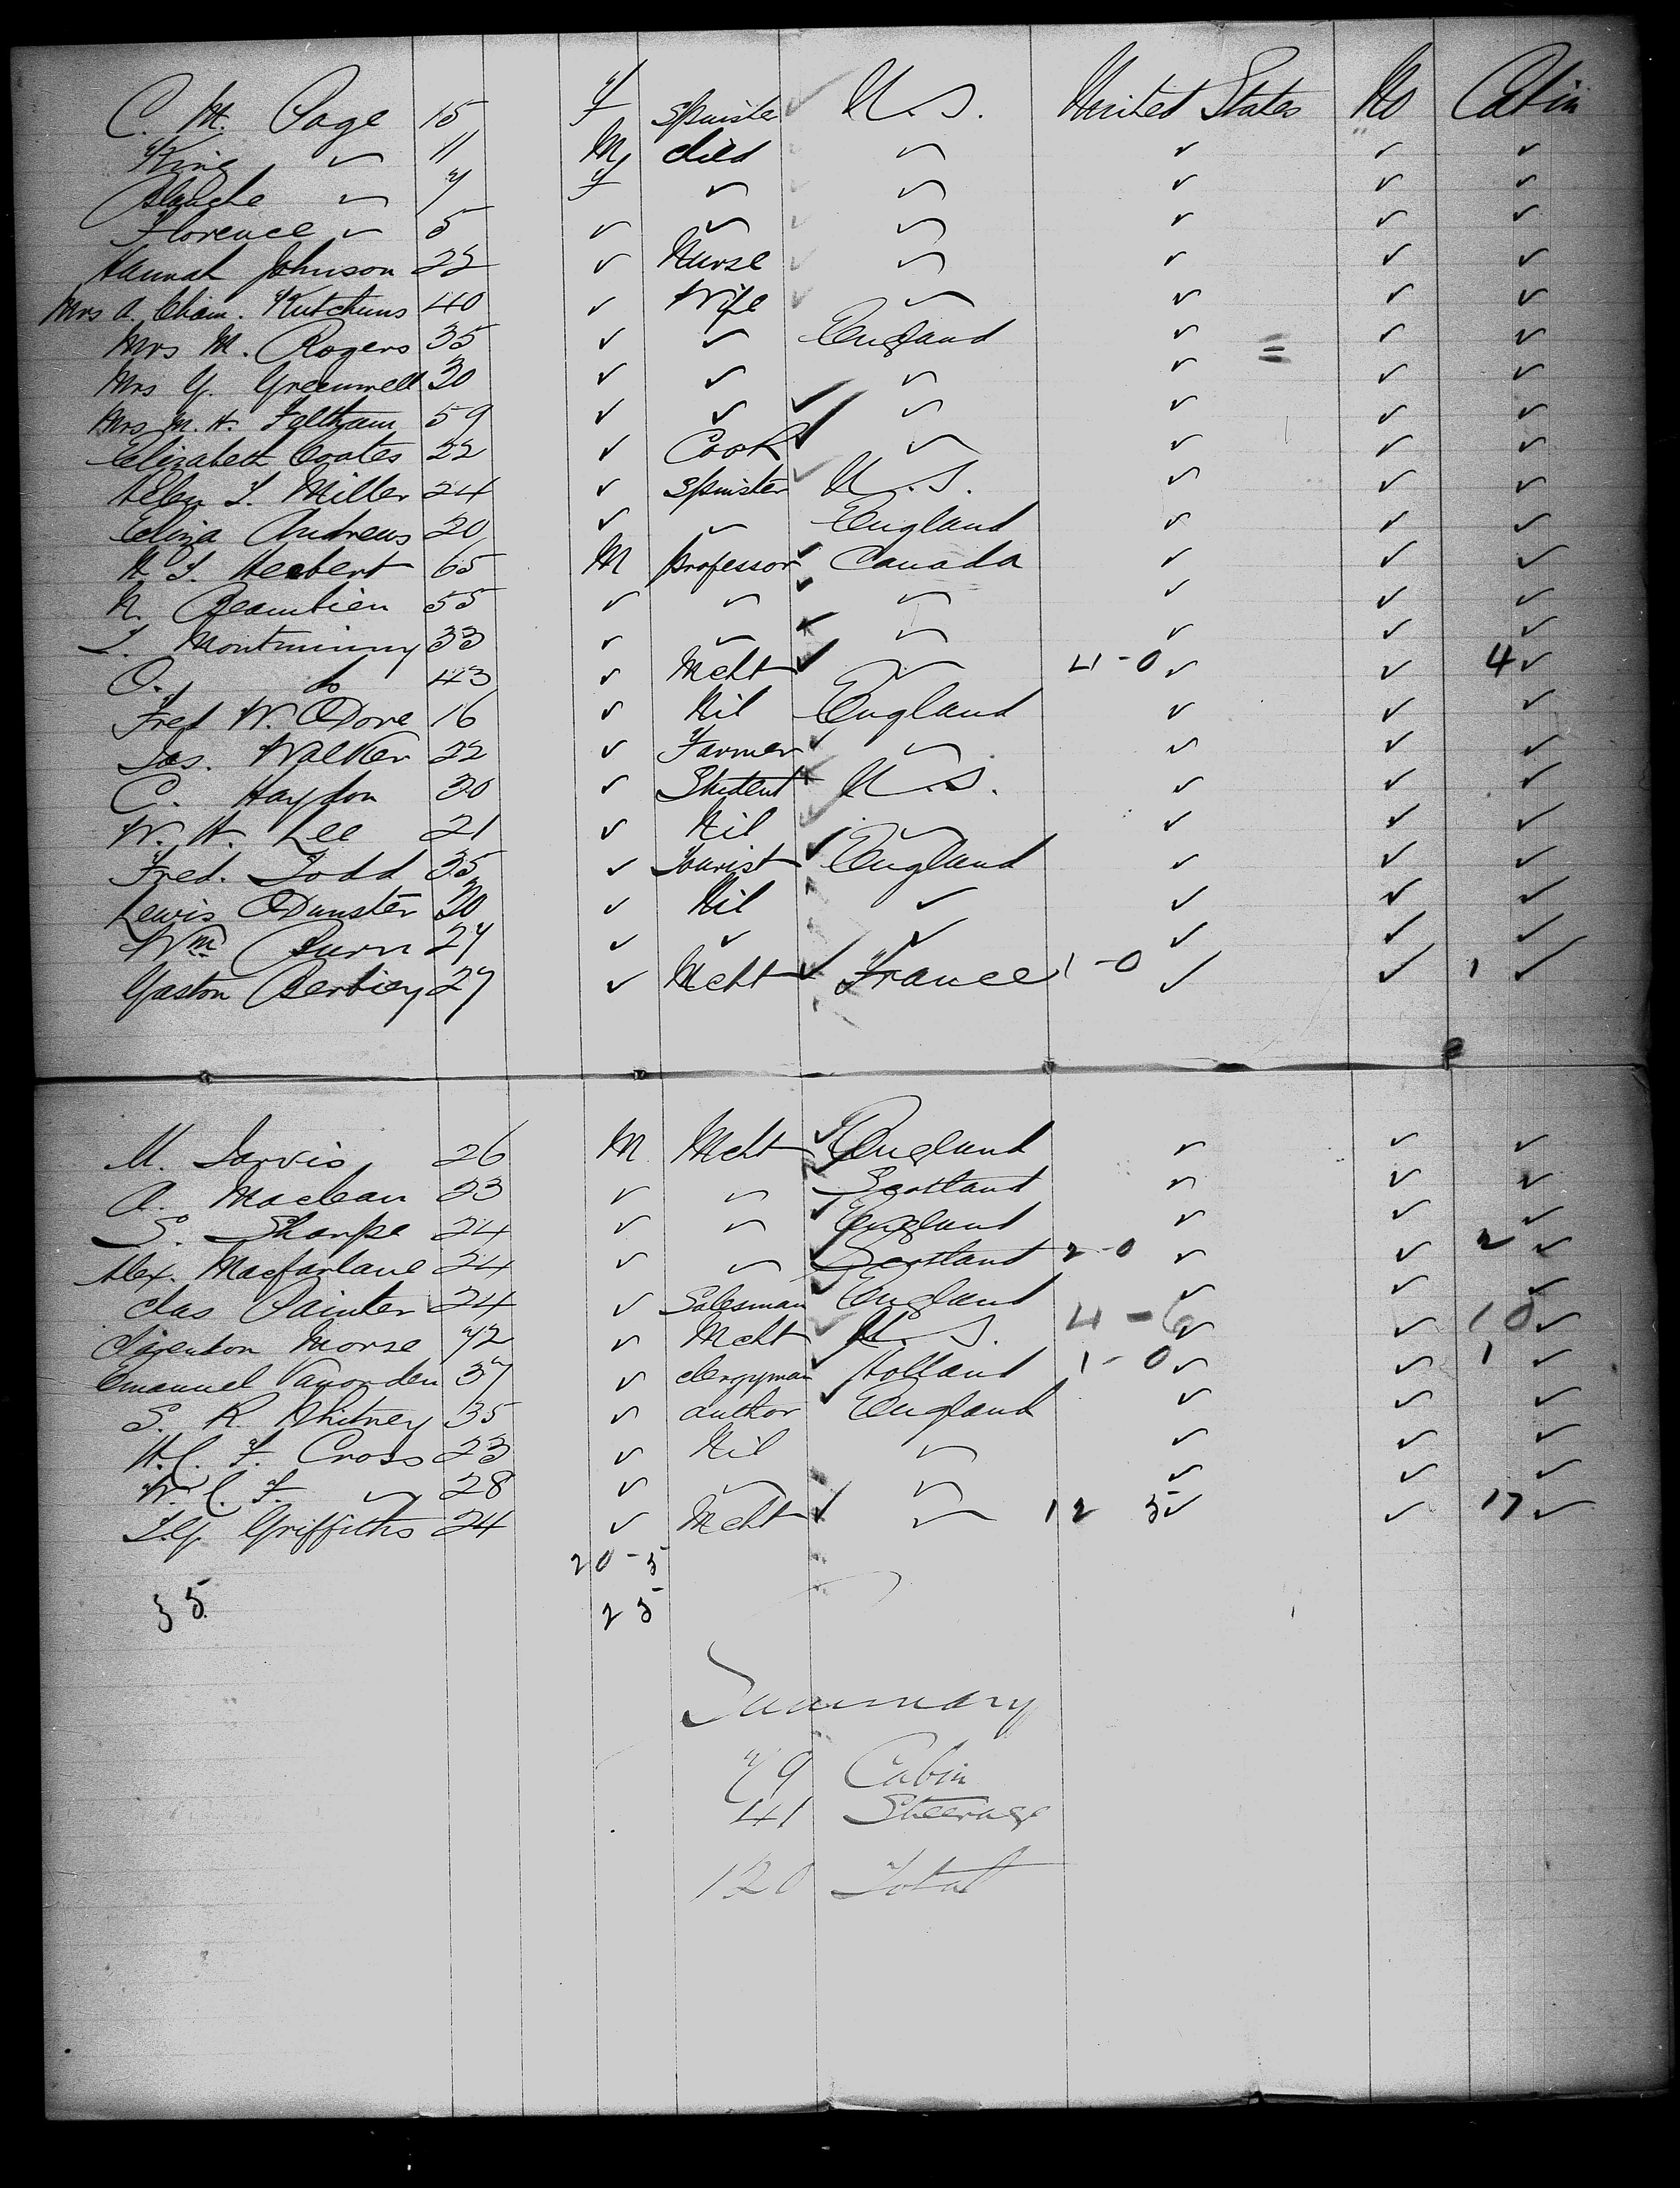 C. M. Page 15 F Spinster ✓ U.S. United States No Cabin
King " 11 M child " ✓ ✓ ✓
Blanche " 7 F " " ✓ ✓ ✓
Florence " 5 ✓ " " ✓ ✓ ✓
Hannah Johnson 22 ✓ Nurse " ✓ ✓ ✓
Mrs A. Cham. Kutchins 40 ✓ Wife " ✓ ✓ ✓
Mrs M. Rogers 35 ✓ ✓ England ✓ = ✓ ✓
Mrs G. Greenwell 30 ✓ ✓ " ✓ ✓ ✓
Mrs M. H. Feltham 59 ✓ ✓ ✓ " ✓ ✓ ✓
Elizabeth Coates 22 ✓ Cook ✓ " ✓ ✓ ✓
Helen T. Miller 24 ✓ Spinster U.S. ✓ ✓ ✓
Eliza Andrews 20 ✓ " England ✓ ✓ ✓
N. T. Heebert 65 M Professor ✓ Canada ✓ ✓ ✓
N. Beaubien 55 ✓ " ✓ " ✓ ✓ ✓
T. Montminny 33 ✓ " " ✓ ✓ ✓
O. do 43 ✓ Mcht ✓ " 4-0 ✓ ✓ 4 ✓
Fred W. Dove 16 ✓ Nil England ✓ ✓ ✓
Jas. Walker 22 ✓ Farmer ✓ " ✓ ✓ ✓
C. Haydon 30 ✓ Student U.S. ✓ ✓ ✓
W. H. Lee 21 ✓ Nil " ✓ ✓ ✓
Fred. Todd 35 ✓ Tourist ✓ England ✓ ✓ ✓
Lewis Dunster 30 ✓ Nil ✓ ✓ ✓ ✓
Wm Burn 27 ✓ ✓ ✓ ✓ ✓ ✓
Gaston Bertiey 27 ✓ Mcht ✓ France 1-0 ✓ ✓ 1 ✓
M. Jarvis 26 M Mcht ✓ England ✓ ✓ ✓
A. Maclean 23 ✓ " Scotland ✓ ✓ ✓
S. Sharpe 24 ✓ " ✓ England ✓ ✓ ✓
Alex. Macfarlane 24 ✓ " Scotland 2-0 ✓ ✓ 2 ✓
Chas Painter 24 ✓ Salesman England ✓ ✓ ✓
Morse 72 ✓ Mcht ✓ U.S. 4-6 ✓ ✓ 10 ✓
Emanuel Vanorden 37 ✓ clergyman Holland 1-0 ✓ ✓ 1 ✓
S. R. Whitney 35 ✓ author ✓ England ✓ ✓ ✓
H. C. F. Cross 23 ✓ Nil " ✓ ✓ ✓
W. C. F. " 28 ✓ " " ✓ ✓ ✓
T. G. Griffiths 24 ✓ Mcht ✓ " 12 5 ✓ ✓ 17 ✓
20-5
35 25
Summary
79 Cabin
41 Steerage
120 Total